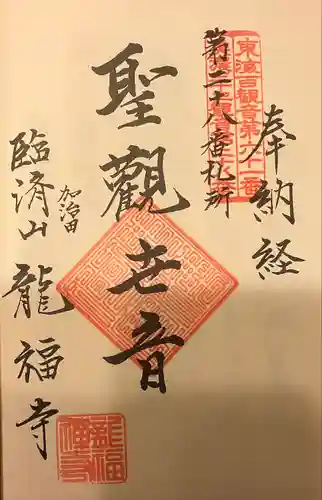 奉納経
東海百観音第六十一番
第二十八番札所
聖観世音
加治田
臨済山龍福寺
龍福禅寺